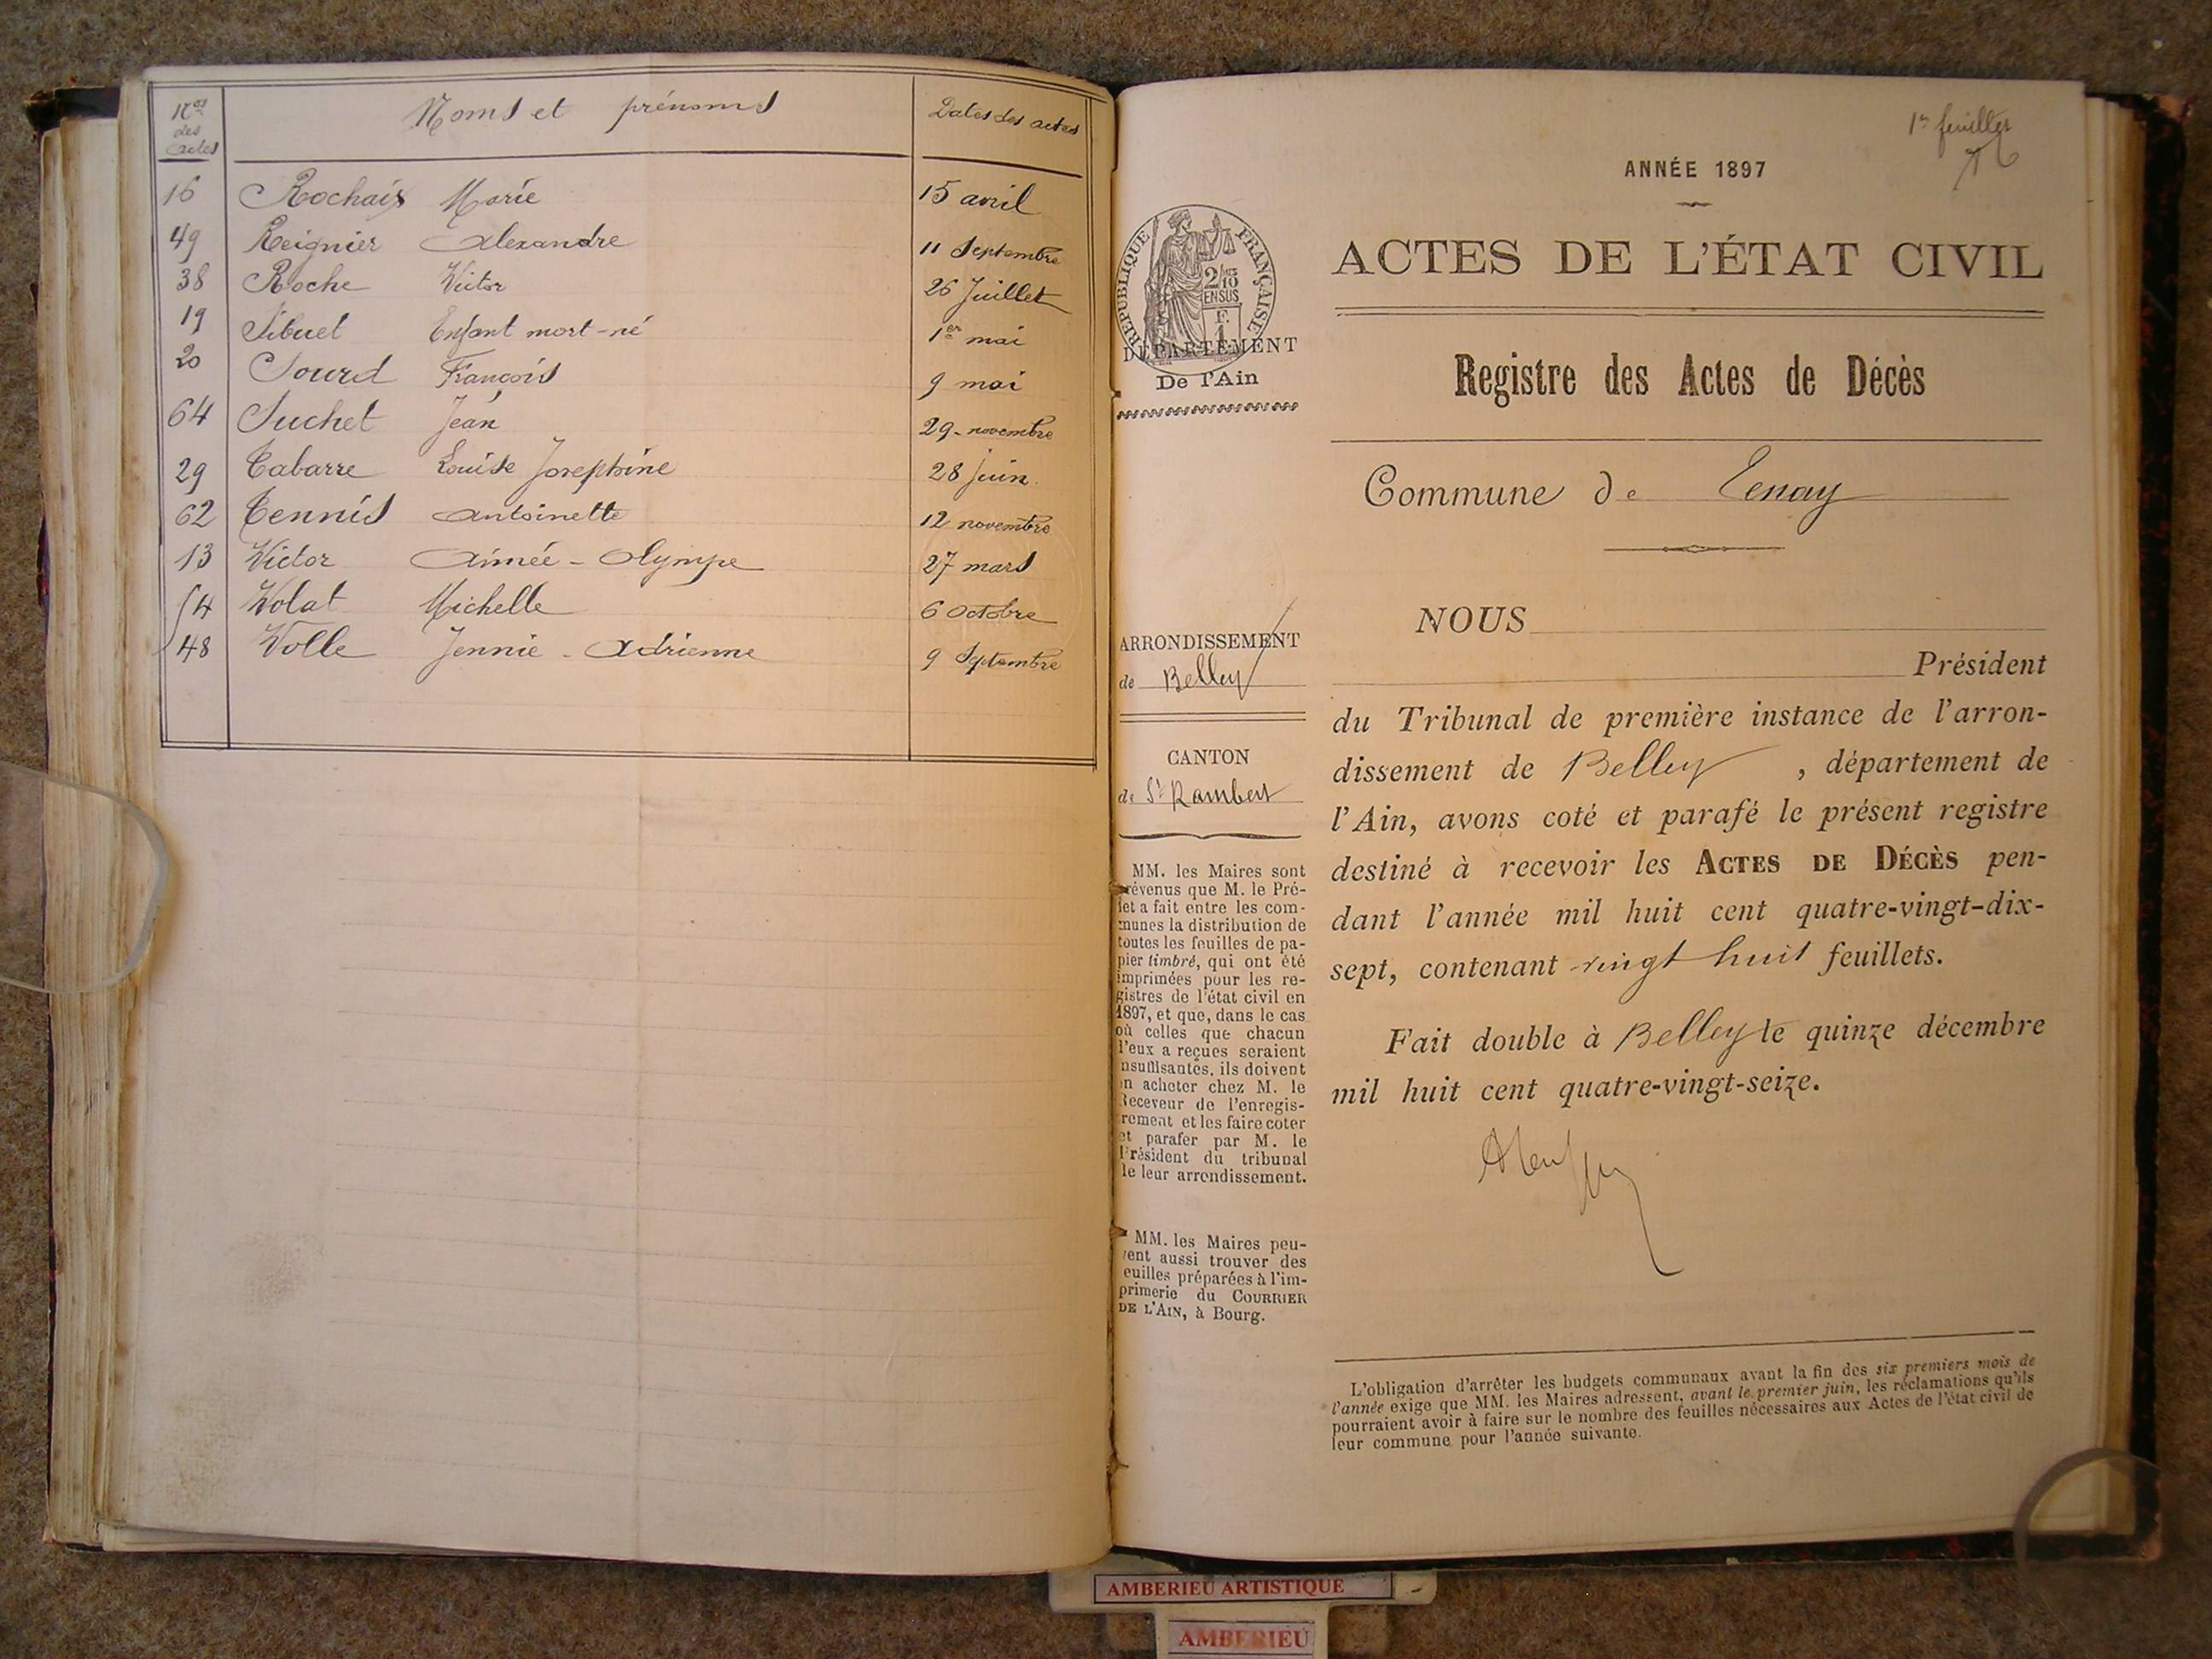 Nos des actes Noms et prénoms Dates des actes
16 Rochaix Marie 15 avril
49 Reignier Alexandre 11 Septembre
38 Roche Victor 26 Juillet
19 Sibuet Enfant mort-né 1er mai
20 Sourd François 9 mai
64 Suchet Jean 29 novembre
29 Tabarre Louise Josephine 28 juin
62 Tennis Antoinette 12 novembre
13 Victor Aimée-Olympe 27 mars
54 Volat Michelle 6 Octobre
48 Volle Jennie-Adrienne 9 Septembre
1er feuillet
ANNÉE 1897
RÉPUBLIQUE FRANÇAISE
2/10 EN SUS
F. 1
DÉPARTEMENT
De l'Ain
ARRONDISSEMENT
de Belley
CANTON
de St Rambert
MM. les Maires sont
prévenus que M. le Pré-
fet a fait entre les com-
munes la distribution de
toutes les feuilles de pa-
pier timbré, qui ont été
imprimées pour les re-
gistres de l'état civil en
1897, et que, dans le cas
où celles que chacun
d'eux a reçues seraient
insuffisantes, ils doivent
en acheter chez M. le
Receveur de l'enregis-
trement et les faire coter
et parafer par M. le
Président du tribunal
de leur arrondissement.
MM. les Maires peu-
vent aussi trouver des
feuilles préparées à l'im-
primerie du COURRIER
DE L'AIN, à Bourg.
ACTES DE L'ÉTAT CIVIL
Registre des Actes de Décès
Commune de Tenay
NOUS
Président
du Tribunal de première instance de l'arron-
dissement de Belley , département de
l'Ain, avons coté et parafé le présent registre
destiné à recevoir les ACTES DE DÉCÈS pen-
dant l'année mil huit cent quatre-vingt-dix-
sept, contenant vingt huit feuillets.
Fait double à Belley le quinze décembre
mil huit cent quatre-vingt-seize.
L'obligation d'arrêter les budgets communaux avant la fin des six premiers mois de
l'année exige que MM. les Maires adressent, avant le premier juin, les réclamations qu'ils
pourraient avoir à faire sur le nombre des feuilles nécessaires aux Actes de l'état civil de
leur commune pour l'année suivante.
AMBERIEU ARTISTIQUE
AMBERIEU